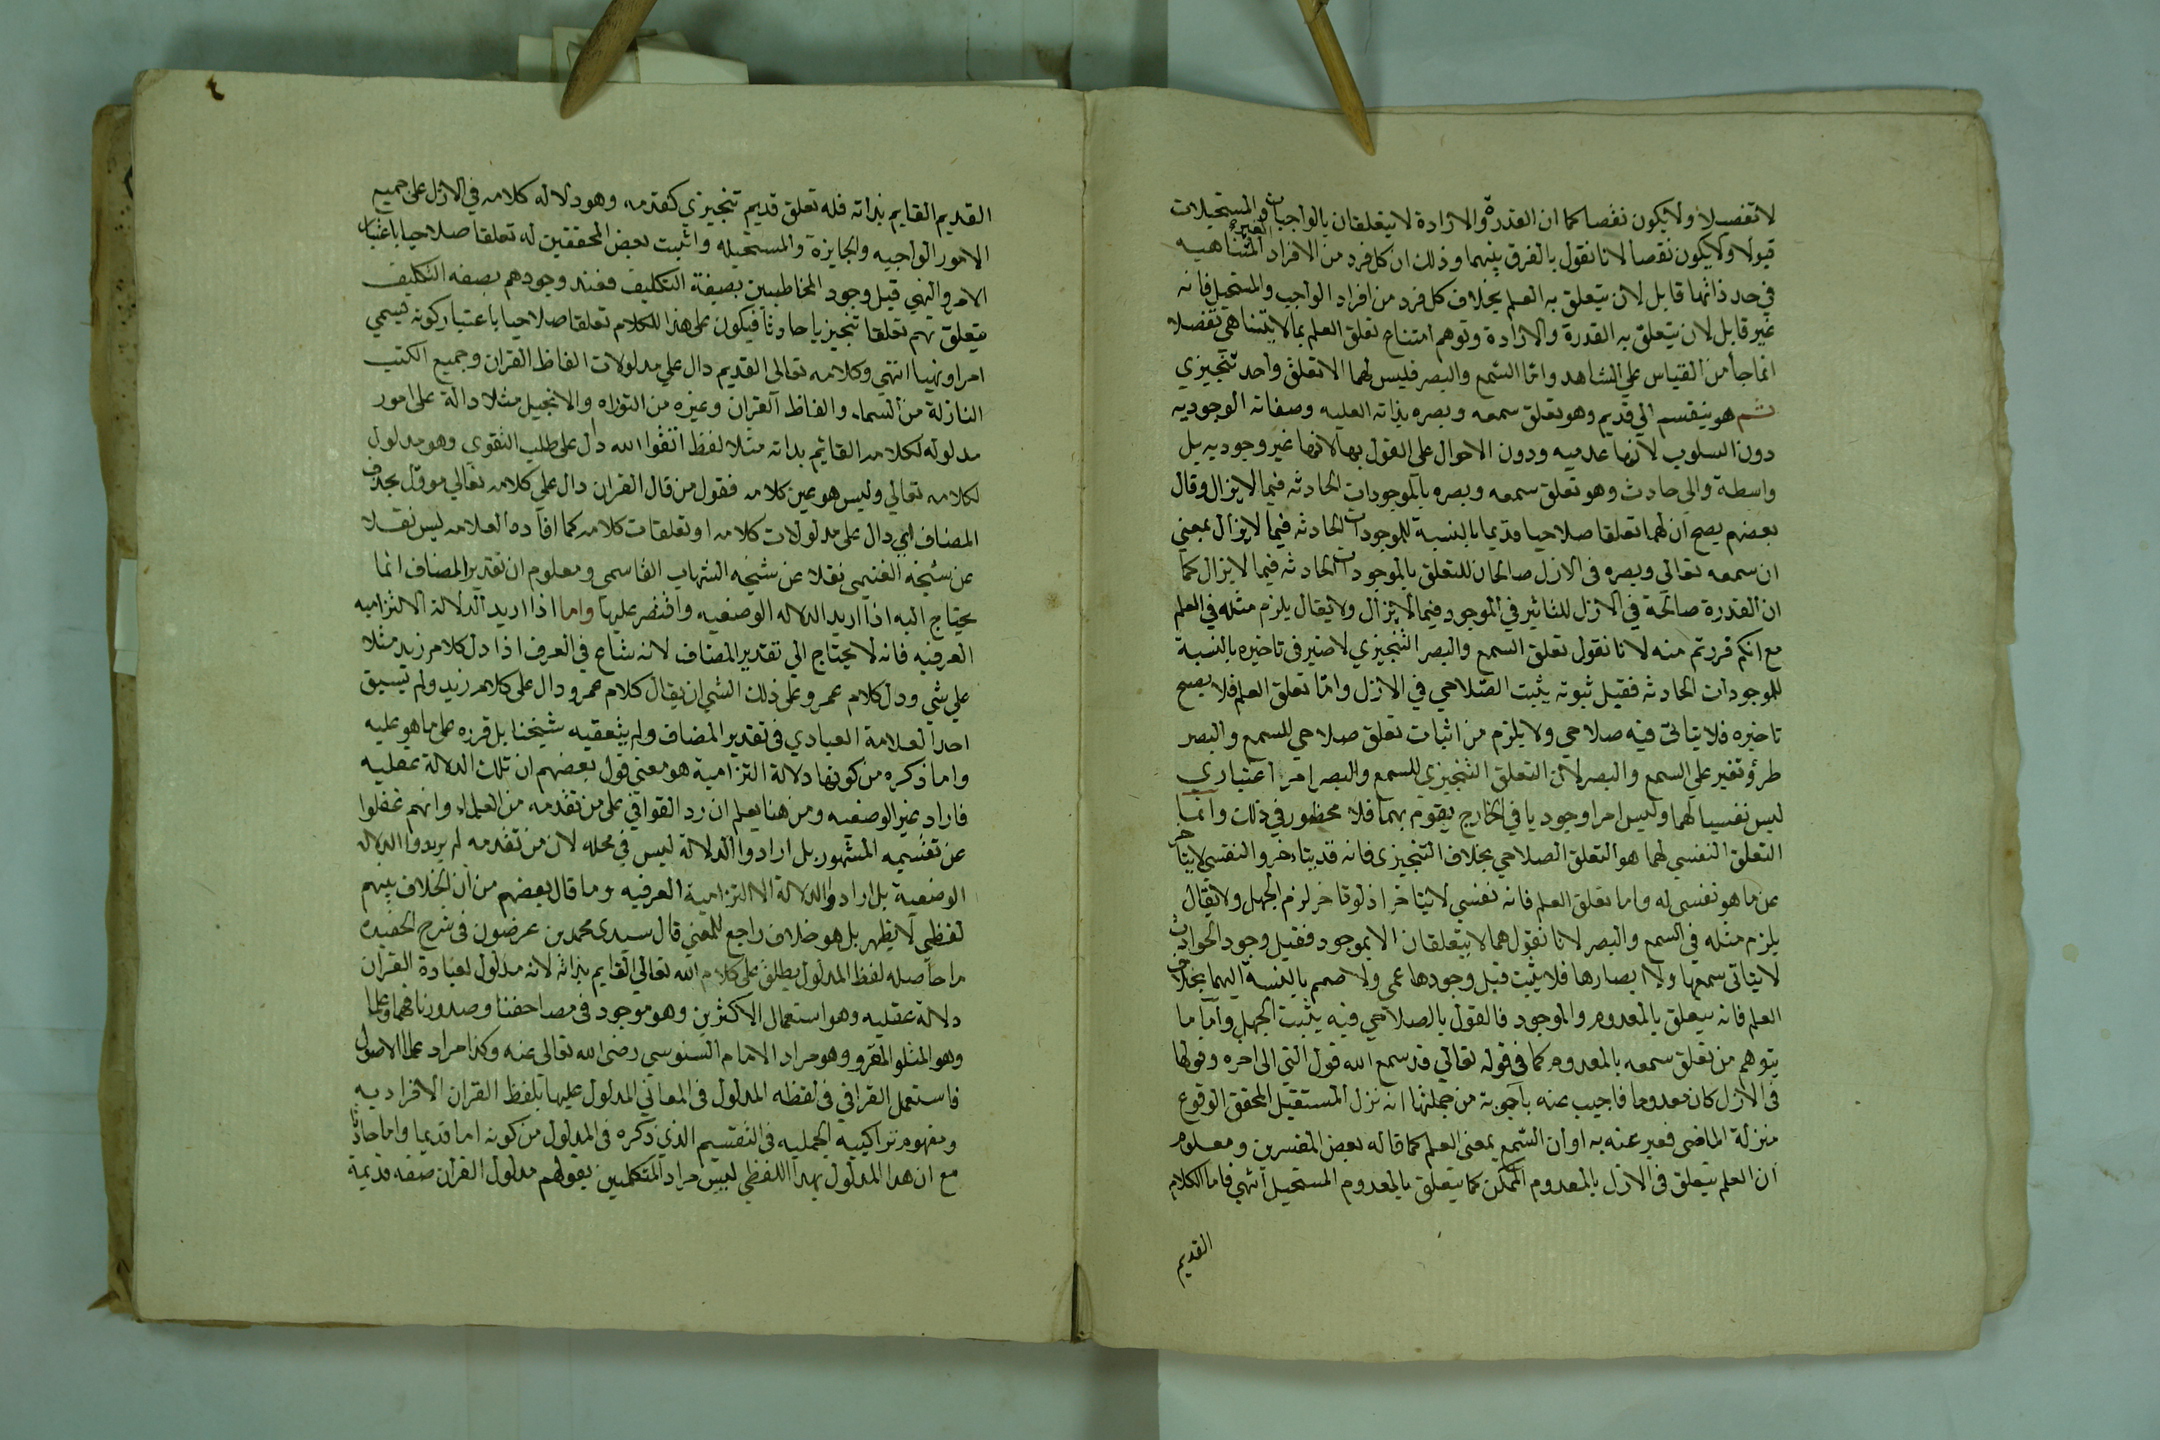 لا تفصيلا ولا يكون نقصا كما ان القدرة والارادة لا يتعلقان بالواجبات والمستحيلات
قبولا ولا يكون نقصا لانا نقول بالفرق بينهما وذلك ان كل فرد من الافراد الغير المتناهيه
في حد ذاتها قابل لان يتعلق به العلم بخلاف كل فرد من افراد الواجب والمستحيل فانه
غير قابل لان يتعلق به القدرة والارادة وتوهم امتناع تعلق العلم بما لا يتناهي تفصيلا
انما جا من القياس علي الشاهد واما السمع والبصر فليس لهما الا تعلق واحد تنجيزي
ثم هو ينقسم الي قديم وهو تعلق سمعه وبصره بذاته العليه وصفاته الوجوديه
دون السلوب لانها عدميه ودون الاحوال علي القول بها لانها غير وجوديه بل
واسطة والي حادث وهو تعلق سمعه وبصره بالموجودات الحادثه فيما لا يزال وقال
بعضهم يصح ان لهما تعلقا صلاحيا قديما بالنسبة للموجودات الحادثه فيما لا يزال بمعني
ان سمعه تعالي وبصره في الازل صالحان للتعلق بالموجودات الحادثه فيما لا يزال كما
ان القدرة صالحة في الازل للتاثير في الموجود فيما لا يزال ولا يقال يلزم مثله في العلم
مع انكم قررتم منه لانا نقول تعلق السمع والبصر التنجيزي لا ضير في تاخيره بالنسبة
للموجودات الحادثه فقيل ثبوته يثبت الصلاحي في الازل واما تعلق العلم فلا يصح
تاخيره فلا يتاتي فيه صلاحي ولا يلزم من اثبات تعلق صلاحي للسمع والبصر
طرؤ تغير علي السمع والبصر لان التعلق التنجيزي للسمع والبصر امر اعتباري
ليس نفسيا لهما وليس امرا وجوديا في الخارج يقوم بهما فلا محظور في ذلك وانما
التعلق النفسي لهما هو التعلق الصلاحي بخلاف التنجيزي فانه قد يتاخر والنفسي لا يتاخر
عن ما هو نفسي له واما تعلق العلم فانه نفسي لا يتاخر اذ لو تاخر لزم الجهل ولا يقال
يلزم مثله في السمع والبصر لانا نقول هما لا يتعلقان الا بموجود فقبل وجود الحوادث
لا يتاتي سمعها ولا ابصارها فلا يثبت قبل وجودها عمي ولا صمم بالنسبة اليها بخلاف
العلم فانه يتعلق بالمعدوم والموجود فالقول بالصلاحي فيه يثبت الجهل واما ما
يتوهم من تعلق سمعه بالمعدوم كما في قوله تعالي قد سمع الله قول التي الي اخره وقولها
في الازل كان معدوما فاجيب عنه باجوبة من جملتها انه نزل المستقبل المحقق الوقوع
منزلة الماضي فعبر عنه به او ان السمع بمعني العلم كما قاله بعض المفسرين ومعلوم
ان العلم يتعلق في الازل بالمعدوم الممكن كما يتعلق بالمعدوم المستحيل انتهي فاما الكلام
القديم
٤
القديم القايم بذاته فله تعلق قديم تنجيزي كقدمه، وهو دلاله كلامه في الازل علي جميع
الامور الواجبيه والجايزة والمستحيله واثبت بعض المحققين له تعلقا صلاحيا باعتبار
الامر والنهي قبل وجود المخاطبين بصفة التكليف فعند وجودهم بصفة التكليف
يتعلق بهم تعلقا تنجيزيا حادثا فيكون علي هذا للكلام تعلقا صلاحيا باعتبار كونه يسمي
امرا ونهيا انتهي وكلامه تعالي القديم دال علي مدلولات الفاظ القران وجميع الكتب
النازلة من السماء والفاظ القران وغيره من التوراه والانجيل مثلا دالة علي امور
مدلوله لكلامه القائيم بذاته مثلا لفظ اتقوا الله دل علي طلب التقوي وهو مدلول
لكلامه تعالي وليس هو عين كلامه فقول من قال القران دال علي كلامه تعالي موؤل بحذف
المضاف اي دال علي مدلولات كلامه او تعلقات كلامه كما افاده العلامه يس نقلا
عن شيخه الغنيمي نقلا عن شيخه الشهاب القاسمي ومعلوم ان تقدير المضاف انما
يحتاج اليه اذا اريد الدلاله الوضعيه واقتصر عليها واما اذا اريد الدلالة الالتزاميه
العرفيه فانه لا يحتاج الي تقدير المضاف لانه شاع في العرف اذا دل كلام زيد مثلا
علي شي ودل كلام عمرو علي ذلك الشي ان يقال كلام عمرو دال علي كلام زيد ولم يسبق
احد العلامة العبادي في تقدير المضاف ولم يتعقبه شيخنا بل قرره علي ما هو عليه
واما ذكره من كونها دلالة التزامية هو معني قول بعضهم ان تلك الدلالة عقليه
فاراد غير الوضعيه ومن هنا يعلم ان رد القرافي علي من تقدمه من العلماء وانهم غفلوا
عن تقسيمه المشهور بل ارادوا الدلالة ليس في محله لان من تقدمه لم يريدوا الدلاله
الوضعية بل ارادوا الدلالة الالتزامية العرفيه وما قال بعضهم من ان الخلاف بينهم
لفظي لا يظهر بل هو خلاف راجع للمعني قال سيدي محمد بن عرضون في شرح الحفيده
ما حاصله لفظ المدلول يطلق علي كلام الله تعالي القايم بذاته لانه مدلول لعبادة القران
دلالة عقليه وهو استعمال الاكثرين وهو موجود في مصاحفنا وصدورنا فهما وعلما
وهو المتلو المقرو وهو مراد الامام السنوسي رضي الله تعالي عنه وكذا مراد علما الاصول
فاستعمل القرافي في لفظه المدلول في المعاني المدلول عليها بلفظ القران الافراديه
ومفهوم تراكيبه الجمليه في التقسيم الذي ذكره في المدلول من كونه اما قديما واما حادثا
مع ان هذا المدلول بهذا اللفظي ليس مراد المتكلمين بقولهم مدلول القران صفه قديمة